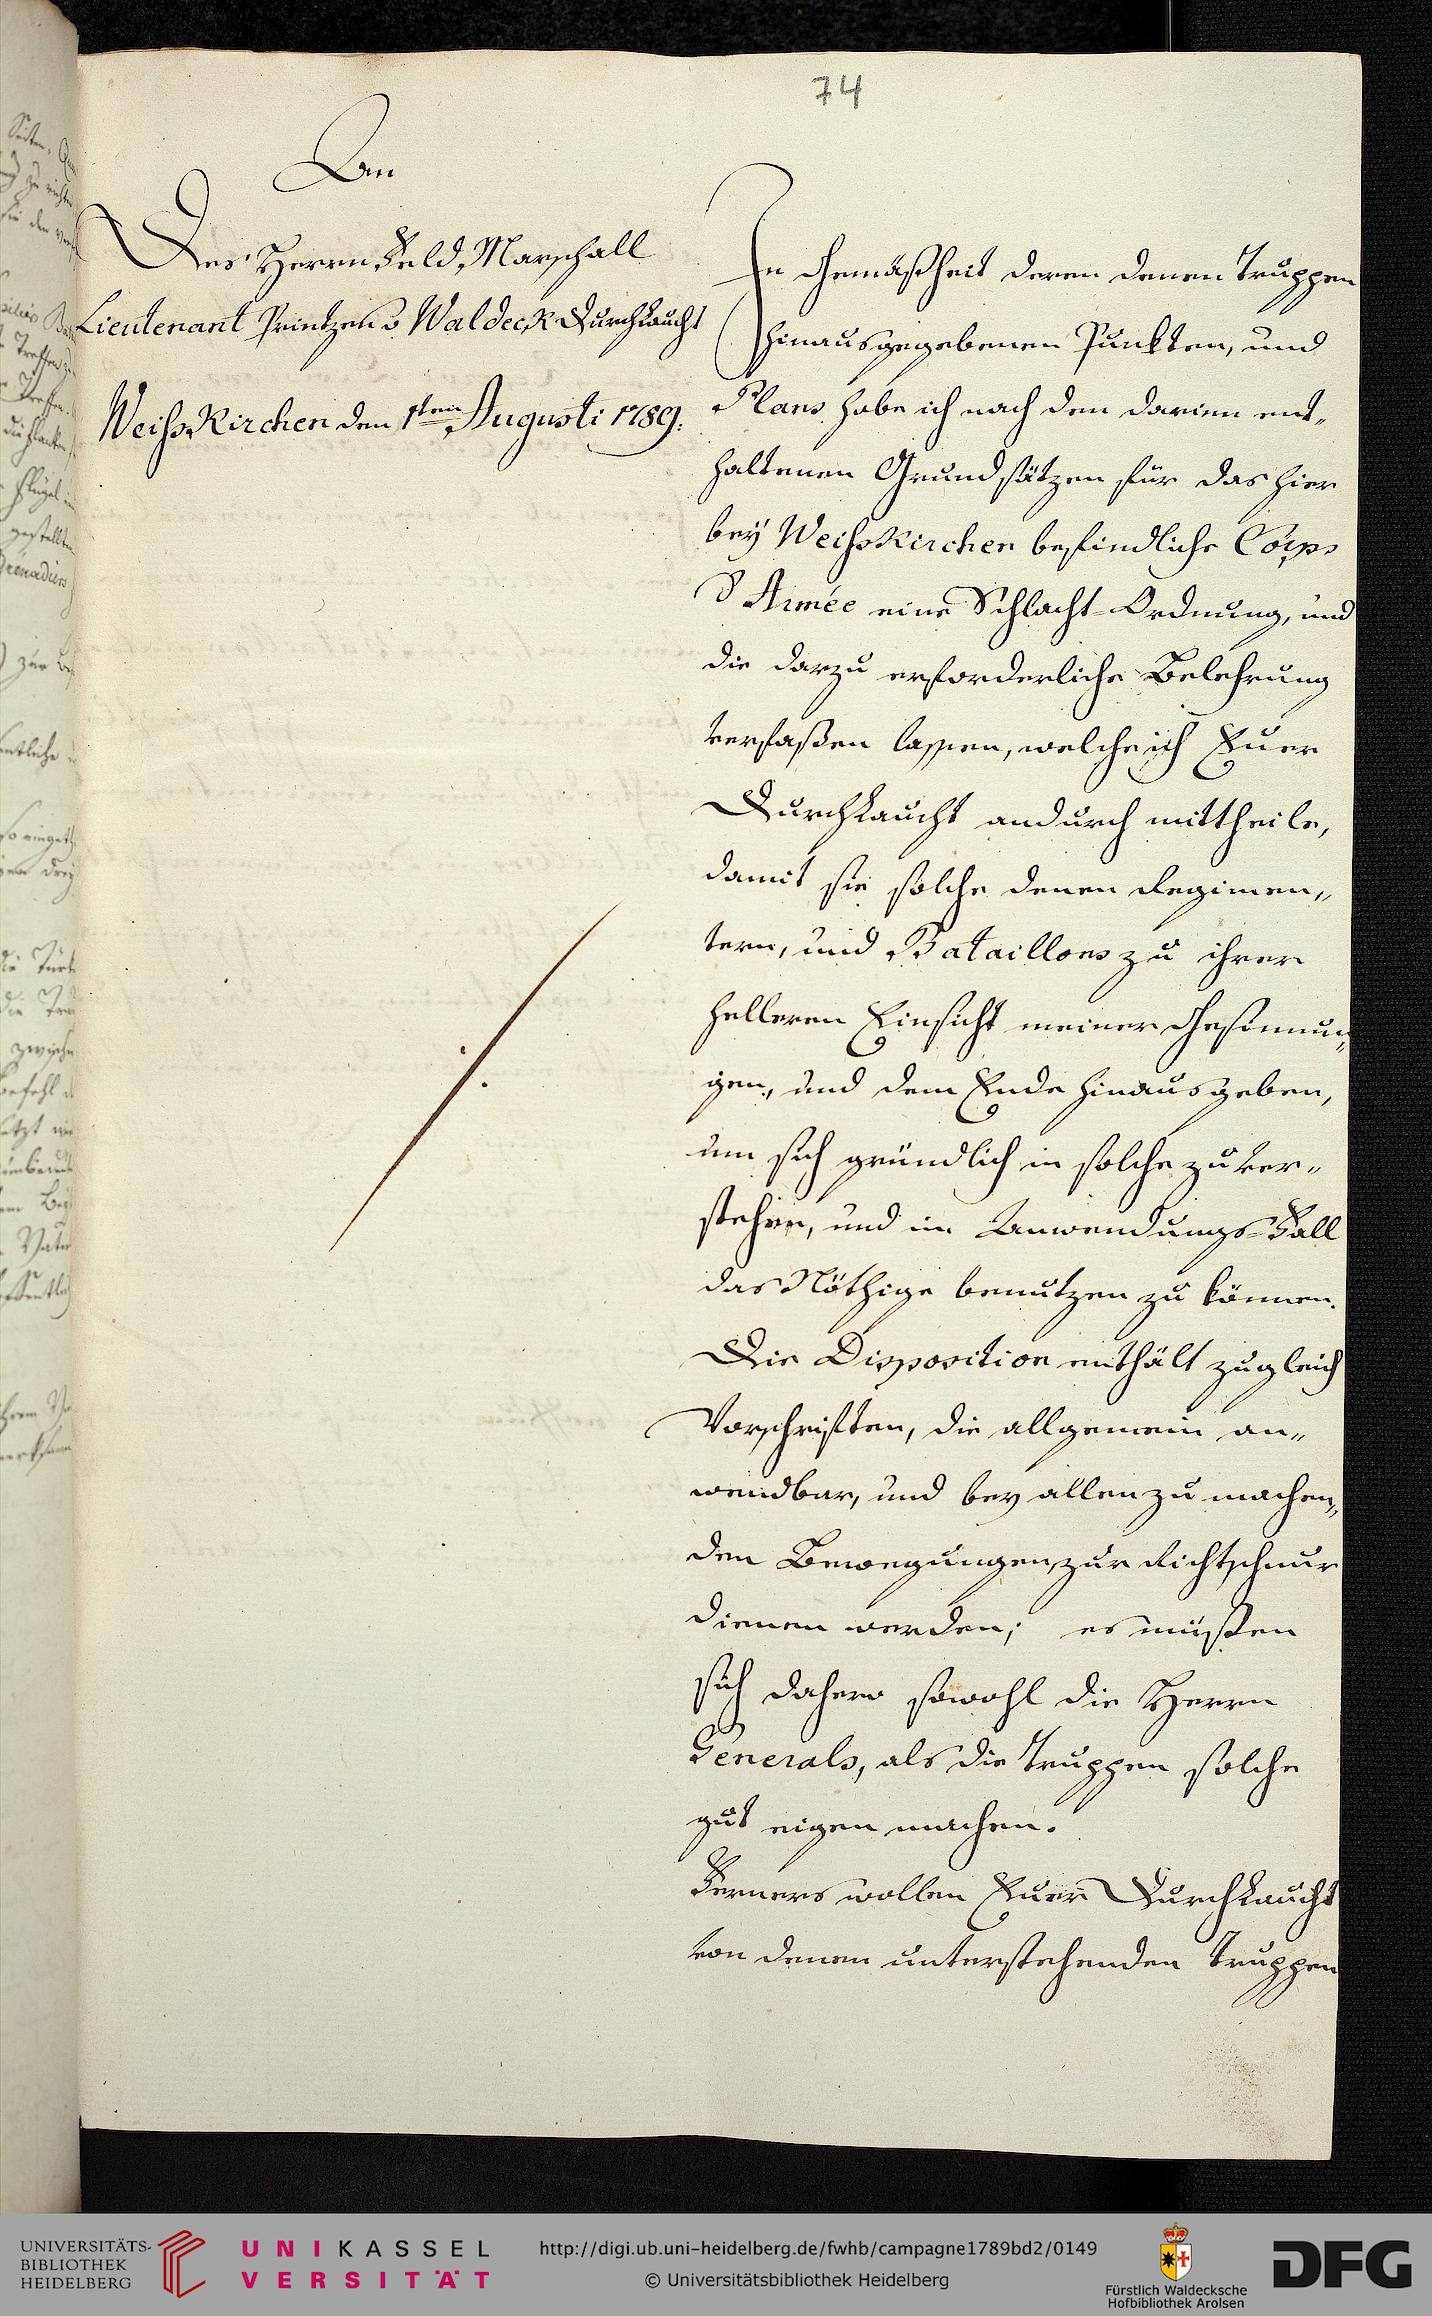 74
An
Des Herrn Feld Marschall
Lieutenant Printzen v Waldeck Durchlaucht
Weisskirchen den 1ten Augusti 1789.
In Gemäßheit deren denen Truppen
hinausgegebenen Punkten, und
Plans habe ich nach den darinn ent„
haltenen Grundsätzen für das hier
bey Weisskirchen befindliche Corps
d'Armée eine Schlacht-Ordnung, und
die darzu erforderliche Belehrung
verfaßen lassen, welche ich Euer
Durchlaucht andurch mittheile,
damit sie solche denen Regimen„
tern, und Bataillons zu ihrer
helleren Einsicht meiner Gesinnun„
gen, und dem Ende hinausgeben,
um sich gründlich in solche zu ver„
stehen, und im Anwendungs-Fall
das Nöthige benutzen zu können.
Die Disposition enthält zugleich
Vorschriften, die allgemein an„
wendbar, und bey allen zu machen„
den Bewegungen zur Richtschnur
dienen werden; es müßen
sich dahero sowohl die Herrn
Generals, als die Truppen solche
gut eigen machen.
Ferners wollen Euer Durchlaucht
von denen unterstehenden Truppen
UNIVERSITÄTS-
BIBLIOTHEK
HEIDELBERG
UNIKASSEL
VERSITÄT
http://digi.ub.uni-heidelberg.de/fwhb/campagne1789bd2/0149
© Universitätsbibliothek Heidelberg
Fürstlich Waldecksche
Hofbibliothek Arolsen
DFG